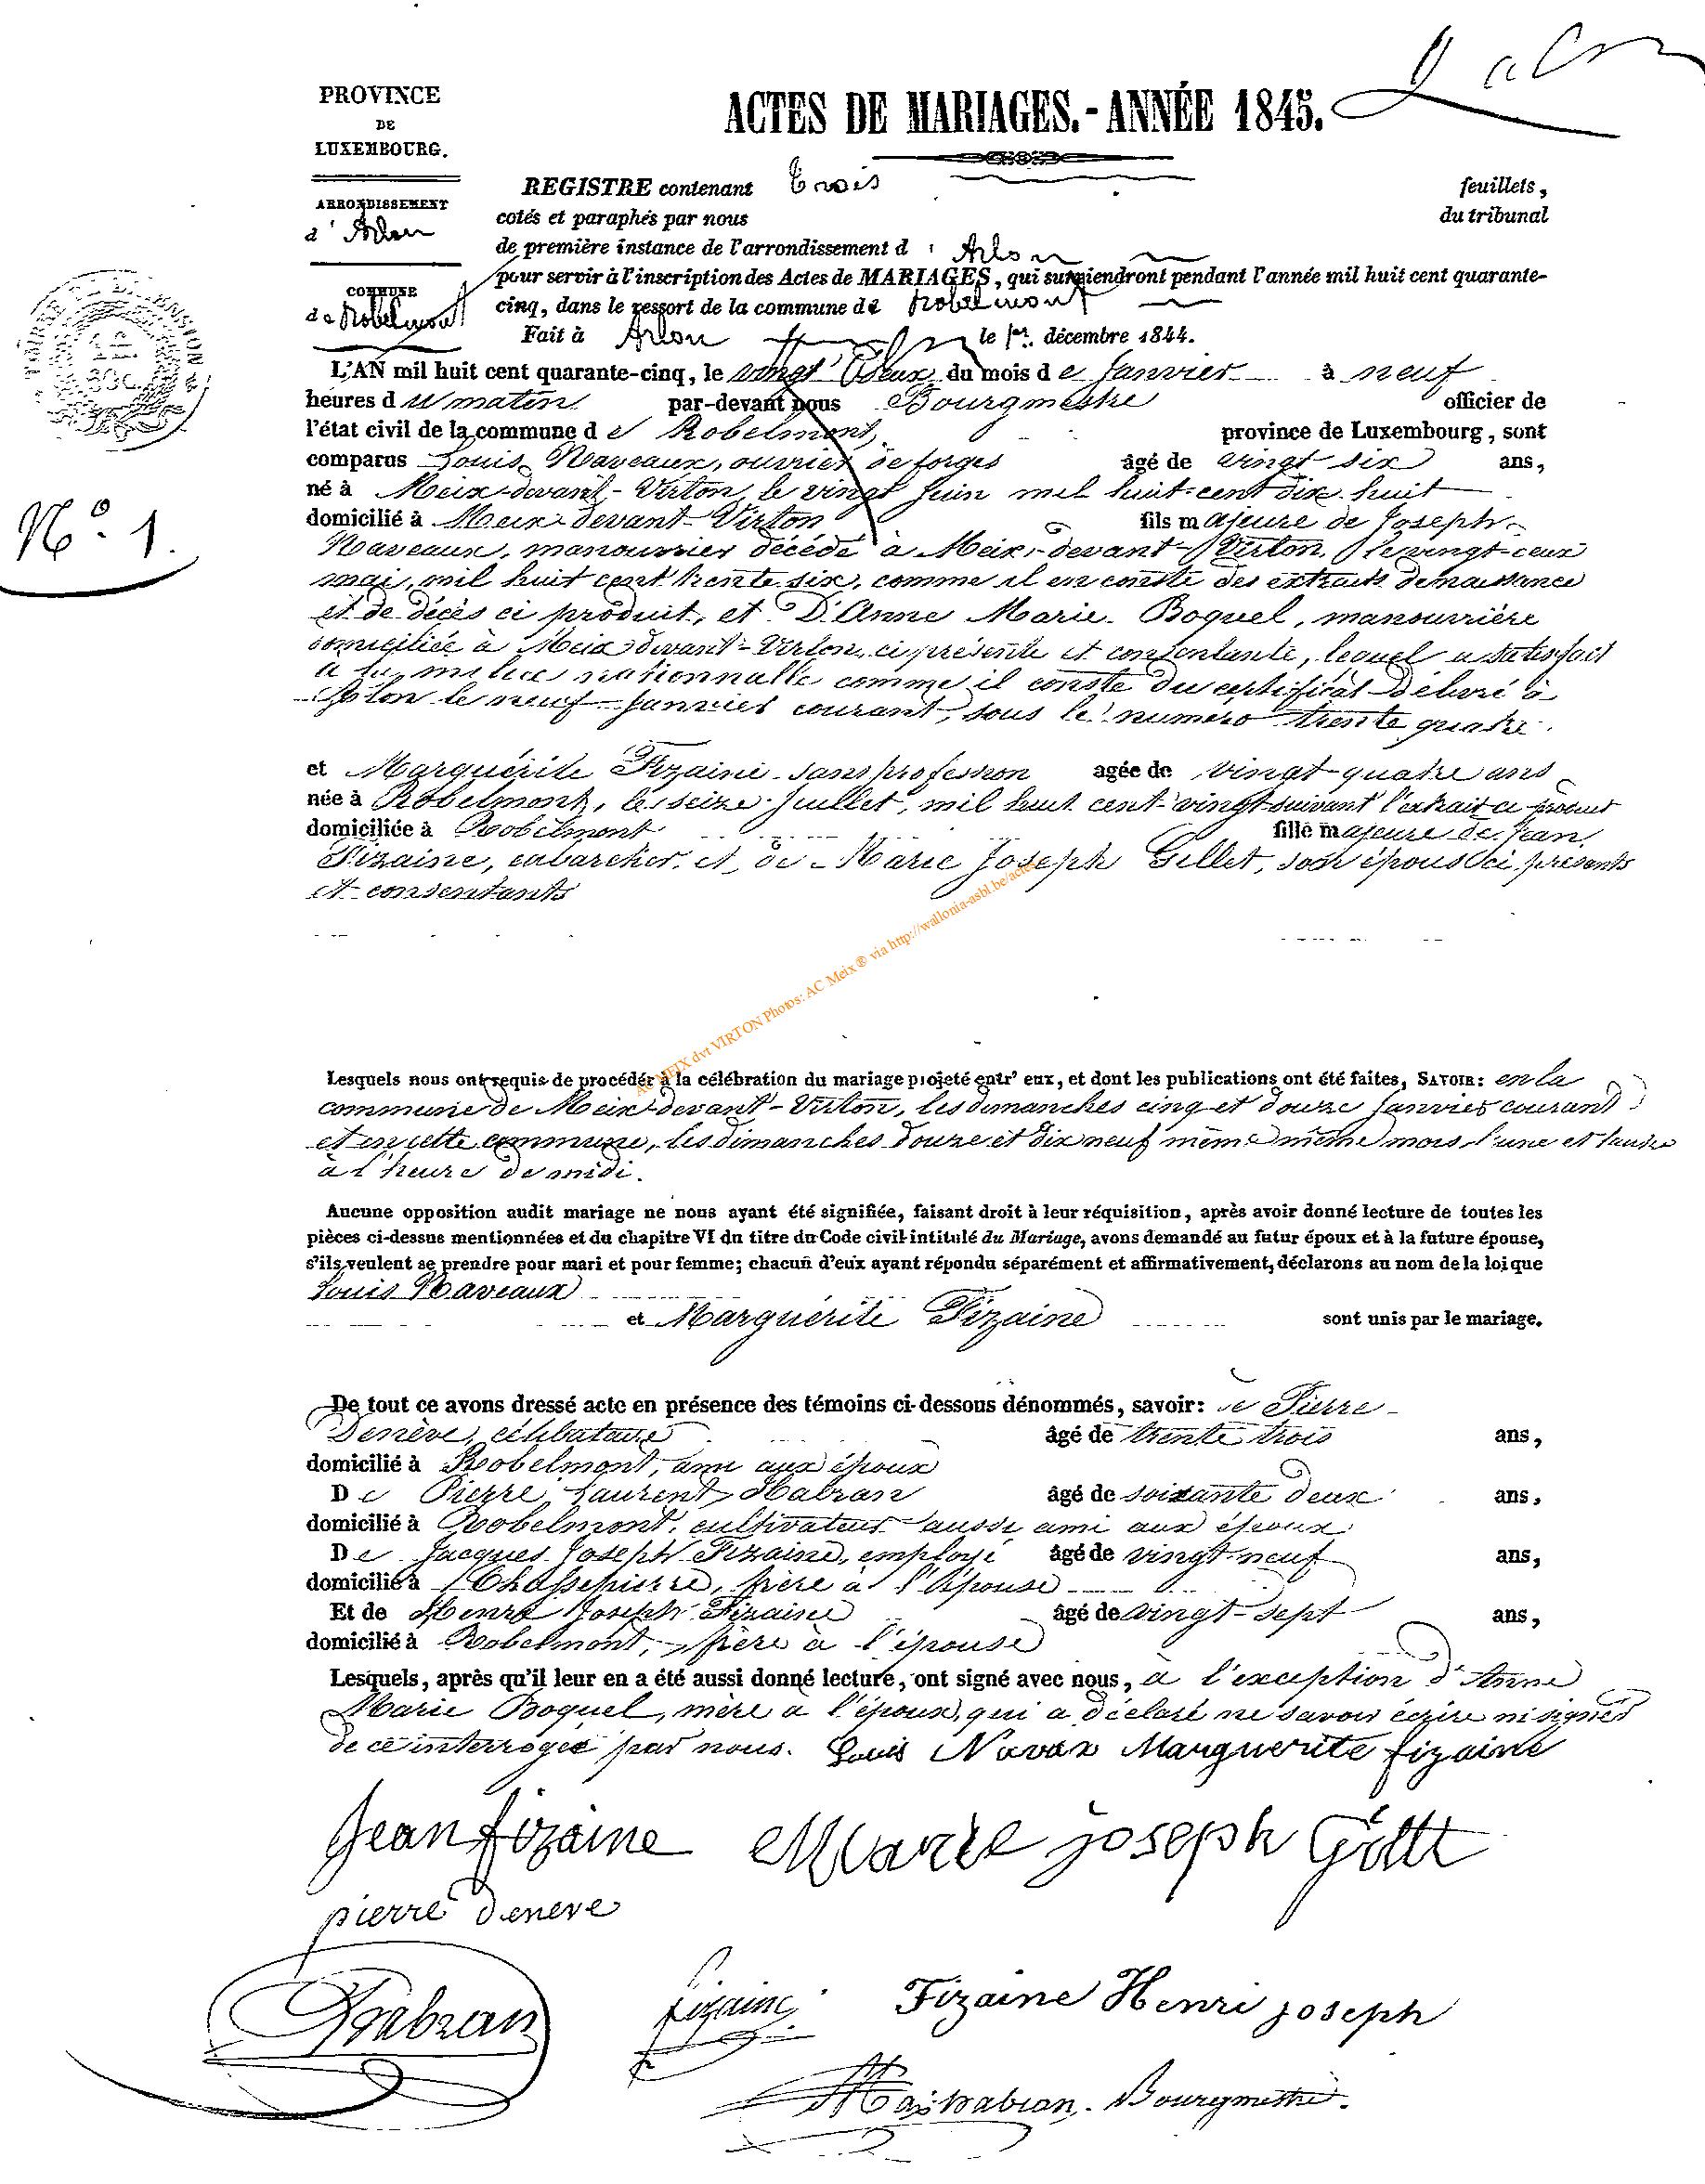 PROVINCE
DE
LUXEMBOURG.
ARRONDISSEMENT
d'Arlon
COMMUNE
de Robelmont
N.° 1.
ACTES DE MARIAGES.-ANNÉE 1845.
REGISTRE contenant trois feuillets,
cotés et paraphés par nous du tribunal
de première instance de l'arrondissement d'Arlon
pour servir à l'inscription des Actes de MARIAGES, qui surviendront pendant l'année mil huit cent quarante-
cinq, dans le ressort de la commune de Robelmont
Fait à Arlon le 1er. décembre 1844.
L'AN mil huit cent quarante-cinq, le vingt deux du mois de Janvier à neuf
heures du matin par-devant nous Bourgmestre officier de
l'état civil de la commune de Robelmont, province de Luxembourg, sont
comparus Louis Naveaux, ouvrier de forges âgé de vingt six ans,
né à Meix-devant-Virton le vingt Juin mil huit-cent dix huit
domicilié à Meix-devant-Virton fils majeure de Joseph
Naveaux, manouvrier décédé à Meix-devant-Virton, le vingt-deux
mai, mil huit cent trente six, comme il en conste des extraits de naissance
et de décès ci produit, et D'Anne Marie Boquel, manouvrière
domiciliée à Meix devant-Virton, ci présente et consentante, lequel a satisfait
à la milice nationnalle comme il conste du certificat délivré à
Arlon le neuf Janvier courant, sous le numéro trente quatre.
et Marguérite Fizaine sans profession agée de vingt-quatre ans
née à Robelmont, le seize Juillet, mil huit cent vingt suivant l'extrait ci produit
domiciliée à Robelmont fille majeure de Jean
Fizaine, cabaretier, et de Marie Joseph Gillet, son épouse ci présents
et consentants
AC MEIX dvt VIRTON Photos: AC Meix ® via http://wallonia-asbl.be/actes
Lesquels nous ont requis de procéder à la célébration du mariage projeté entr' eux, et dont les publications ont été faites, SAVOIR: en la
commune de Meix-devant-Virton, les dimanches cinq et douze Janvier courant
et en cette commune, les dimanches douze et dix neuf même même mois, l'une et l'autre
à l'heure de midi.
Aucune opposition audit mariage ne nous ayant été signifiée, faisant droit à leur réquisition, après avoir donné lecture de toutes les
pièces ci-dessus mentionnées et du chapitre VI du titre du Code civil intitulé du Mariage, avons demandé au futur époux et à la future épouse,
s'ils veulent se prendre pour mari et pour femme; chacun d'eux ayant répondu séparément et affirmativement, déclarons au nom de la loi que
Louis Naveaux
et Marguérite Fizaine sont unis par le mariage.
De tout ce avons dressé acte en présence des témoins ci-dessous dénommés, savoir: de Pierre
Denève, célibataire âgé de trente trois ans,
domicilié à Robelmont, ami aux époux
De Pierre Laurent Habran âgé de soixante deux ans,
domicilié à Robelmont, cultivateur aussi ami aux époux
De Jacques Joseph Fizaine, employé âgé de vingt neuf ans,
domicilié à Chassepierre, frère à l'épouse
Et de Henri Joseph Fizaine âgé de vingt-sept ans,
domicilié à Robelmont, frère à l'épouse
Lesquels, après qu'il leur en a été aussi donné lecture, ont signé avec nous, à l'exception d'Anne
Marie Boquel, mère à l'époux, qui a déclaré ne savoir écrire ni signer
de ce interrogée par nous. Louis Navax Marguerite fizaine
Jean fizaine Marie joseph Gillt
pierre deneve
Habran fizaine Fizaine Henri joseph
Habran. Bourgmestre.